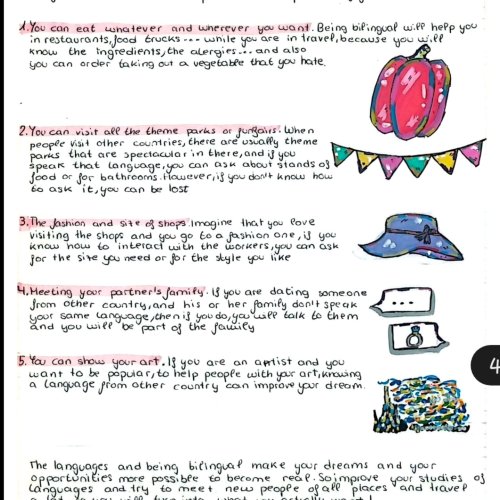 1.You can eat whatever and wherever you want. Being bilingual will help you
in restaurants, food trucks... while you are in travel, because you will
know the ingredients, the alergies... and also
you can order taking out a vegetable that you hate.
2.You can visit all the theme parks or funfairs. When
people visit other countries, there are usually theme
parks that are spectacular in there, and if you
speak that language, you can ask about stands of
food or for bathrooms. However, if you don't know how
to ask it, you can be lost
3.The fashion and site of shops. Imagine that you love
visiting the shops and you go to a fashion one, if you
know how to interact with the workers, you can ask
for the size you need or for the style you like
4.Meeting your partner's family. If you are dating someone
from other country, and his or her family don't speak
your same language, then if you do, you will talk to them
and you will be part of the family
5. You can show your art. If you are an artist and you
want to be popular, to help people with your art, knowing
a language from other country can improve your dream.
4
The languages and being bilingual make your dreams and your
opportunities more possible to become real. So improve your studies of
languages and try to meet new people of all places and travel